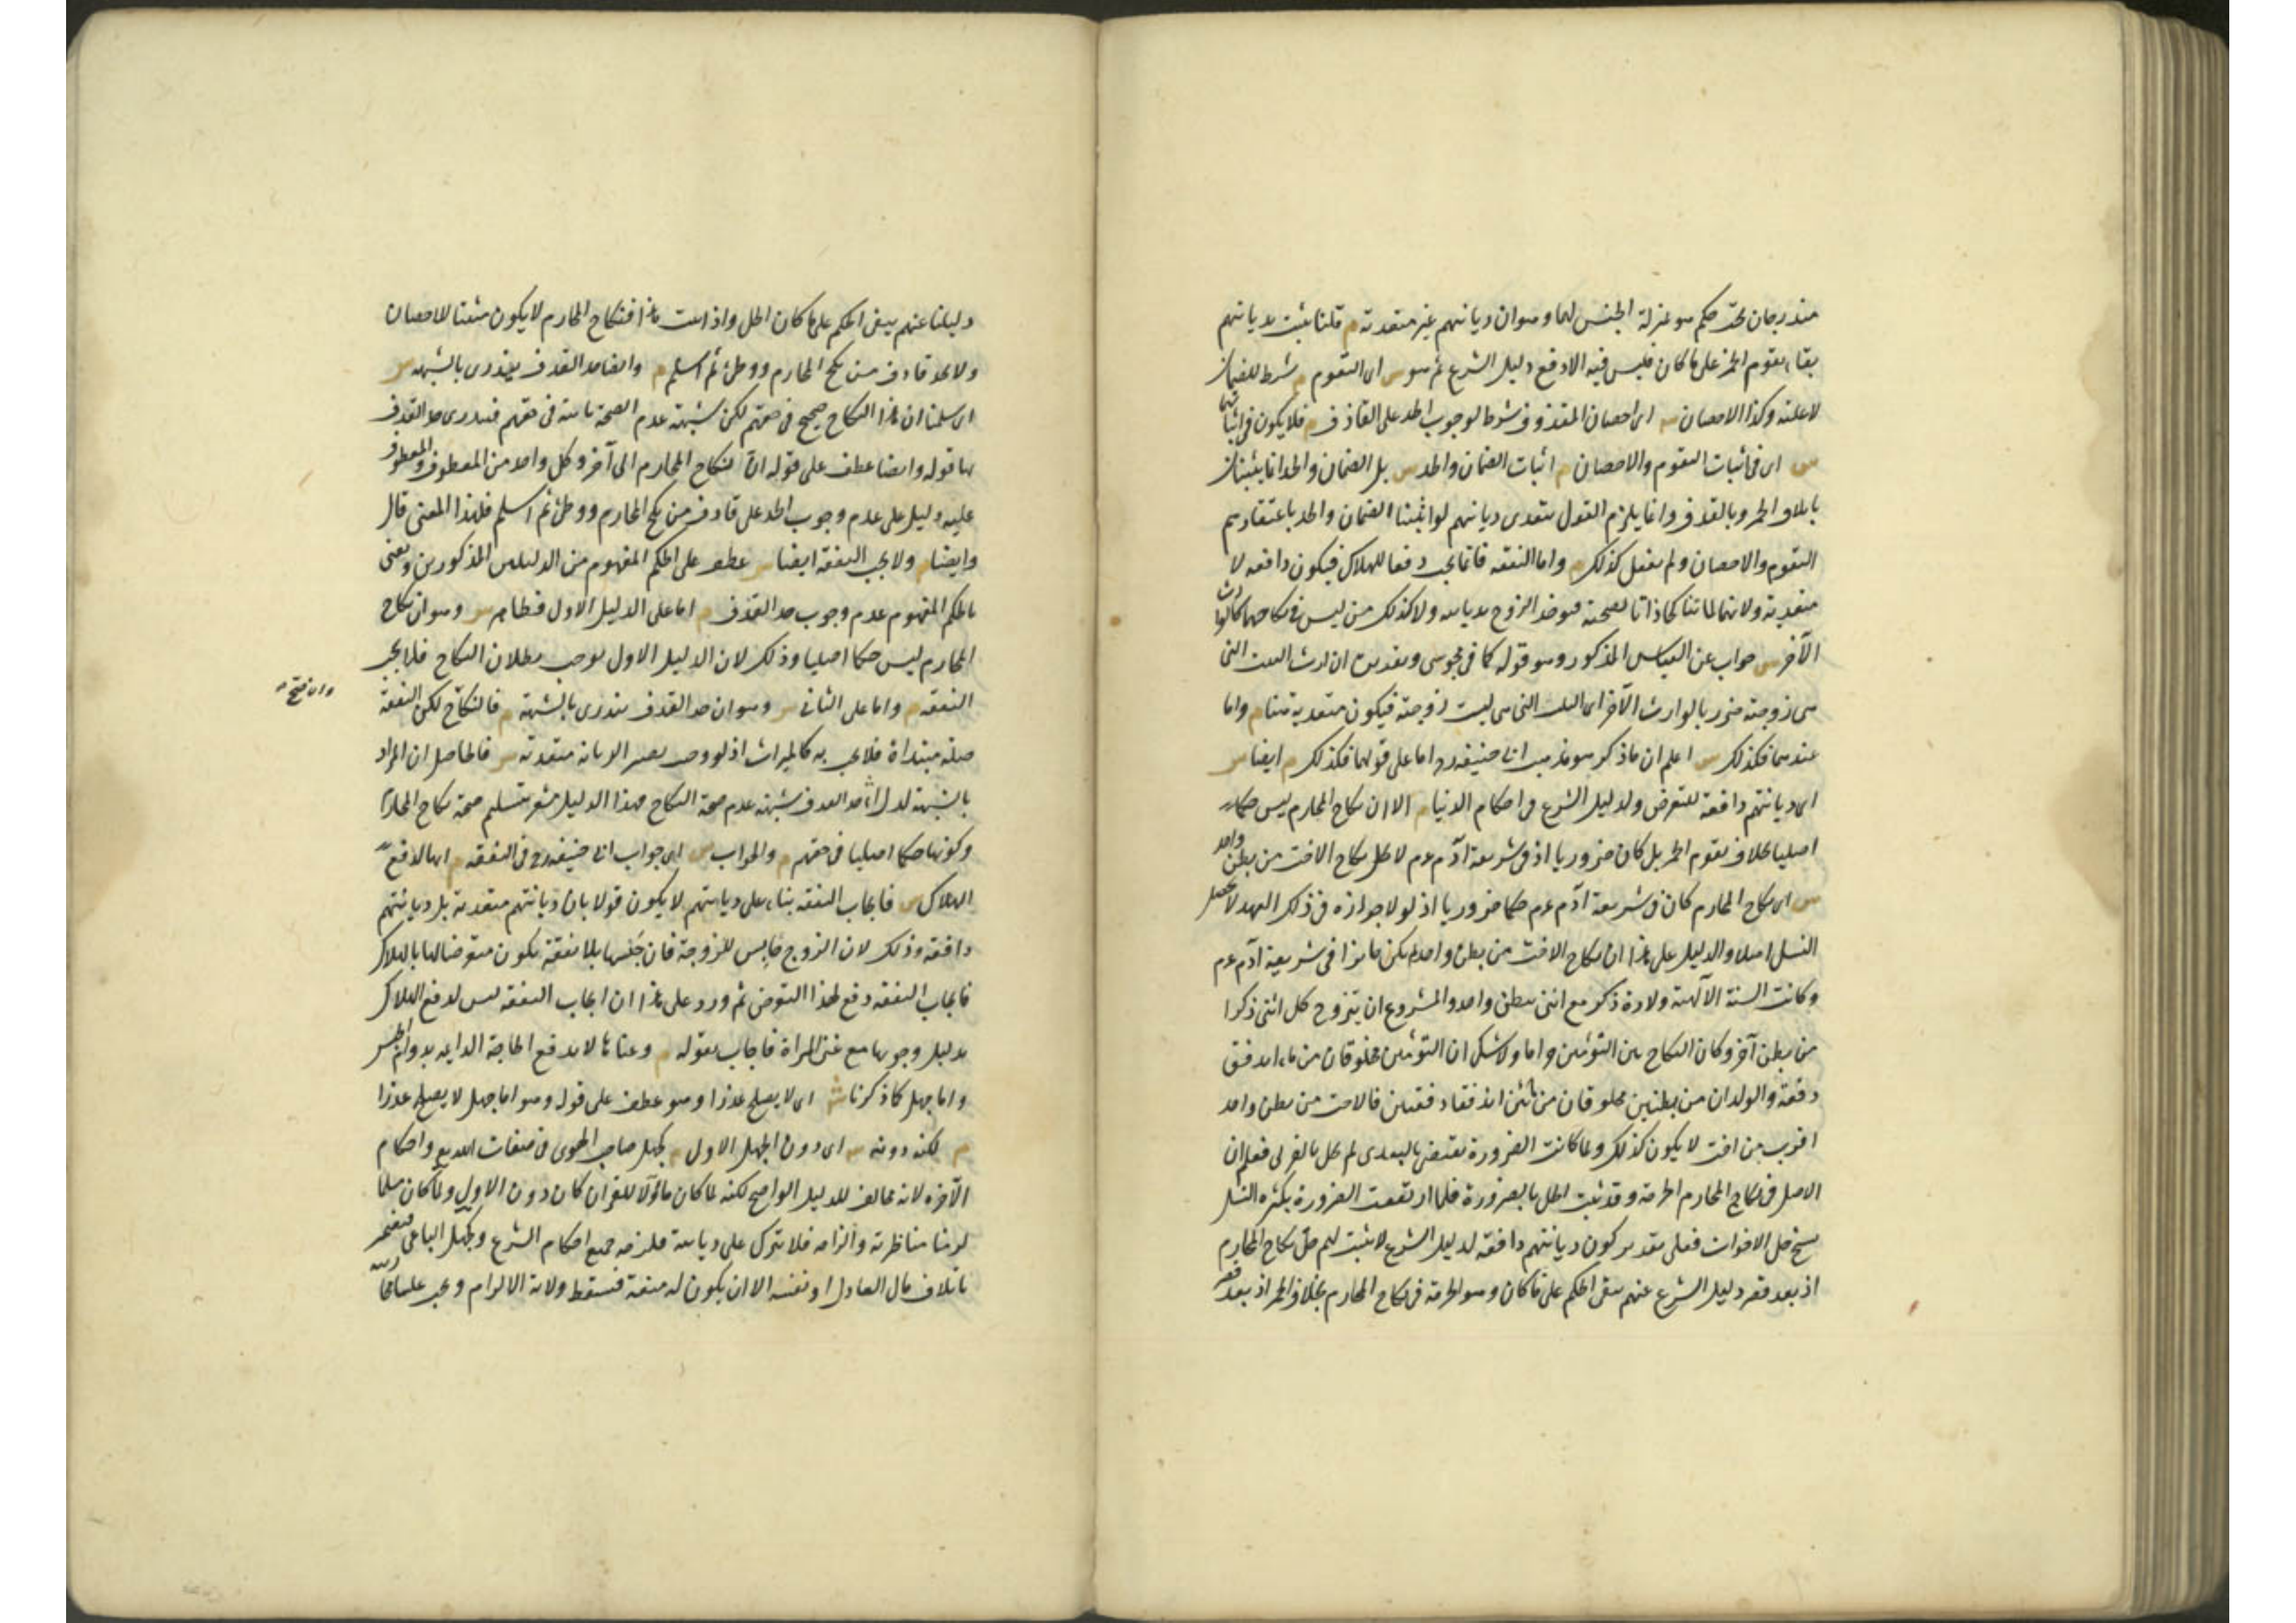 مندرجان تحت حكم هو بمنزلة الجنس لهما وهو ان ديانتهم غير متعدية م قلنا يثبت بديانتهم
بقاء تقوم الخمر على ما كان فليس فيه الا دفع دليل الشرع ثم هو س اى التقوم م شرط للضمان
لا علته وكذا الاحصان س اى احصان المقذوف شرط لوجوب الحد على القاذف م فلا يكون فى اثباتهما
س اى فى اثبات التقوم والاحصان م اثبات الضمان والحد س بل الضمان والحد انما يثبتان
باتلاف الخمر وبالقذف وانما يلزم القول بتعدى ديانتهم لو اثبتنا الضمان والحد باعتقادهم
التقوم والاحصان ولم نفعل كذلك م واما النفقة فانما يجب دفعا للهلاك فيكون دافعة لا
متعدية ولانهما لما تناكحا دانا بصحته فيؤخذ الزوج بديانته ولا كذلك من ليس فى نكاحهما كالوارث
الآخر س جواب عن القياس المذكور وهو قوله كما فى مجوسى وتقديره ان ارث البنت التى
هى زوجته ضرر بالوارث الآخر اى البنت التى هى ليست زوجته فيكون متعدية هنا م واما
عندهما فكذلك س اعلم ان ما ذكر هو مذهب ابى حنيفة رح اما على قولهما فكذلك م ايضا س
اى ديانتهم دافعة للتعرض ولدليل الشرع فى احكام الدنيا م الا ان نكاح المحارم ليس حكما
اصليا بخلاف تقوم الخمر بل كان ضروريا اذ فى شريعة آدم عم لا يحل نكاح الاخت من بطن واحد
س اى نكاح المحارم كان فى شريعة آدم عم حكما ضروريا اذ لولا جوازه فى ذلك العهد لا يحصل
النسل اصلا والدليل على هذا ان نكاح الاخت من بطن واحد لم يكن جائزا فى شريعة آدم عم
وكانت السنة الالهية ولادة ذكر مع انثى ببطن واحد والمشروع ان يتزوج كل انثى ذكرا
من بطن آخر وكان النكاح بين التوئمين حراما ولا شك ان التوئمين مخلوقان من ماء اندفق
دفعة والولدان من بطنين مخلوقان من مائين اندفقا دفقتين فالاخت من بطن واحد
اقرب من اخت لا يكون كذلك ولما كانت الضرورة تقتضى بالبعدى لم تحل بالقربى فعلم ان
الاصل فى نكاح المحارم الحرمة وقد ثبت الحل بالضرورة فلما ارتفعت الضرورة بكثرة النسل
نسخ حل الاخوات فعلى تقدير كون ديانتهم دافعة لدليل الشرع لا يثبت لهم حل نكاح المحارم
اذ بعد قصر دليل الشرع عنهم يبقى الحكم على ما كان وهو الحرمة فى نكاح المحارم بخلاف الخمر اذ بعد قصر
دليلنا عنهم يبقى الحكم على ما كان الحل واذا ثبت هذا فنكاح المحارم لا يكون مثبتا للاحصان
ولا يحد قاذف من نكح المحارم ووطئ ثم اسلم م وايضا حد القذف يندرى بالشبهة س
اى سلمنا ان هذا النكاح صحيح فى حقهم لكن شبهة عدم الصحة ثابتة فى حقهم فيندرى حد القذف
بها قوله وايضا عطف على قوله ان نكاح المحارم الى آخره وكل واحد من المعطوف والمعطوف
عليه دليل على عدم وجوب الحد على قاذف من نكح المحارم ووطئ ثم اسلم فلهذا المعنى قال
وايضا م ولا يجب النفقة ايضا س عطف على الحكم المفهوم من الدليلين المذكورين ويعنى
بالحكم المفهوم عدم وجوب حد القذف م اما على الدليل الاول فظاهر س وهو ان نكاح
المحارم ليس حكما اصليا وذلك لان الدليل الاول يوجب بطلان النكاح فلا يجب
النفقة م واما على الثانى س وهو ان حد القذف يندرى بالشبهة م فالنكاح لكن النفقة
وان صح
صلة مبتداة فلا يجب به كالميراث اذ لو وجب تصير الديانة متعدية س فالحاصل ان المراد
بالشبهة لدرأ حد القذف شبهة عدم صحة النكاح فهذا الدليل مشعر بتسليم صحة نكاح المحارم
وكونها حكما اصليا فى حقهم م والجواب س اى جواب ابى حنيفة رح فى النفقة م انها لدفع
الهلاك س فايجاب النفقة بناء على ديانتهم لا يكون قولا بان ديانتهم متعدية بل ديانتهم
دافعة وذلك لان الزوج حابس للزوجة فان حبسها بلا نفقة يكون متعرضا لها بالهلاك
فايجاب النفقة دفع لهذا التعرض ثم ورد على هذا ان ايجاب النفقة ليس لدفع الهلاك
بدليل وجوبها مع غنى المراة فاجاب بقوله م وغناها لا يدفع الحاجة الدائمة بدوام الحبس
واما جهل كما ذكرنا ش اى لا يصلح عذرا وهو عطف على قوله وهو اما جهل لا يصلح عذرا
م لكنه دونه س اى دون الجهل الاول م كجهل صاحب الهوى فى صفات الله تع واحكام
الآخرة لانه مخالف للدليل الواضح لكنه لما كان مأولا للقران كان دون الاول ولما كان مسلما
لزمنا مناظرته والزامه فلا نترك على ديانته فلزمه جميع احكام الشرع وكجهل الباغى فيضمن
باتلاف مال العادل او نفسه الا ان يكون له منعة فتسقط ولاية الالزام ويجب علينا محاربته